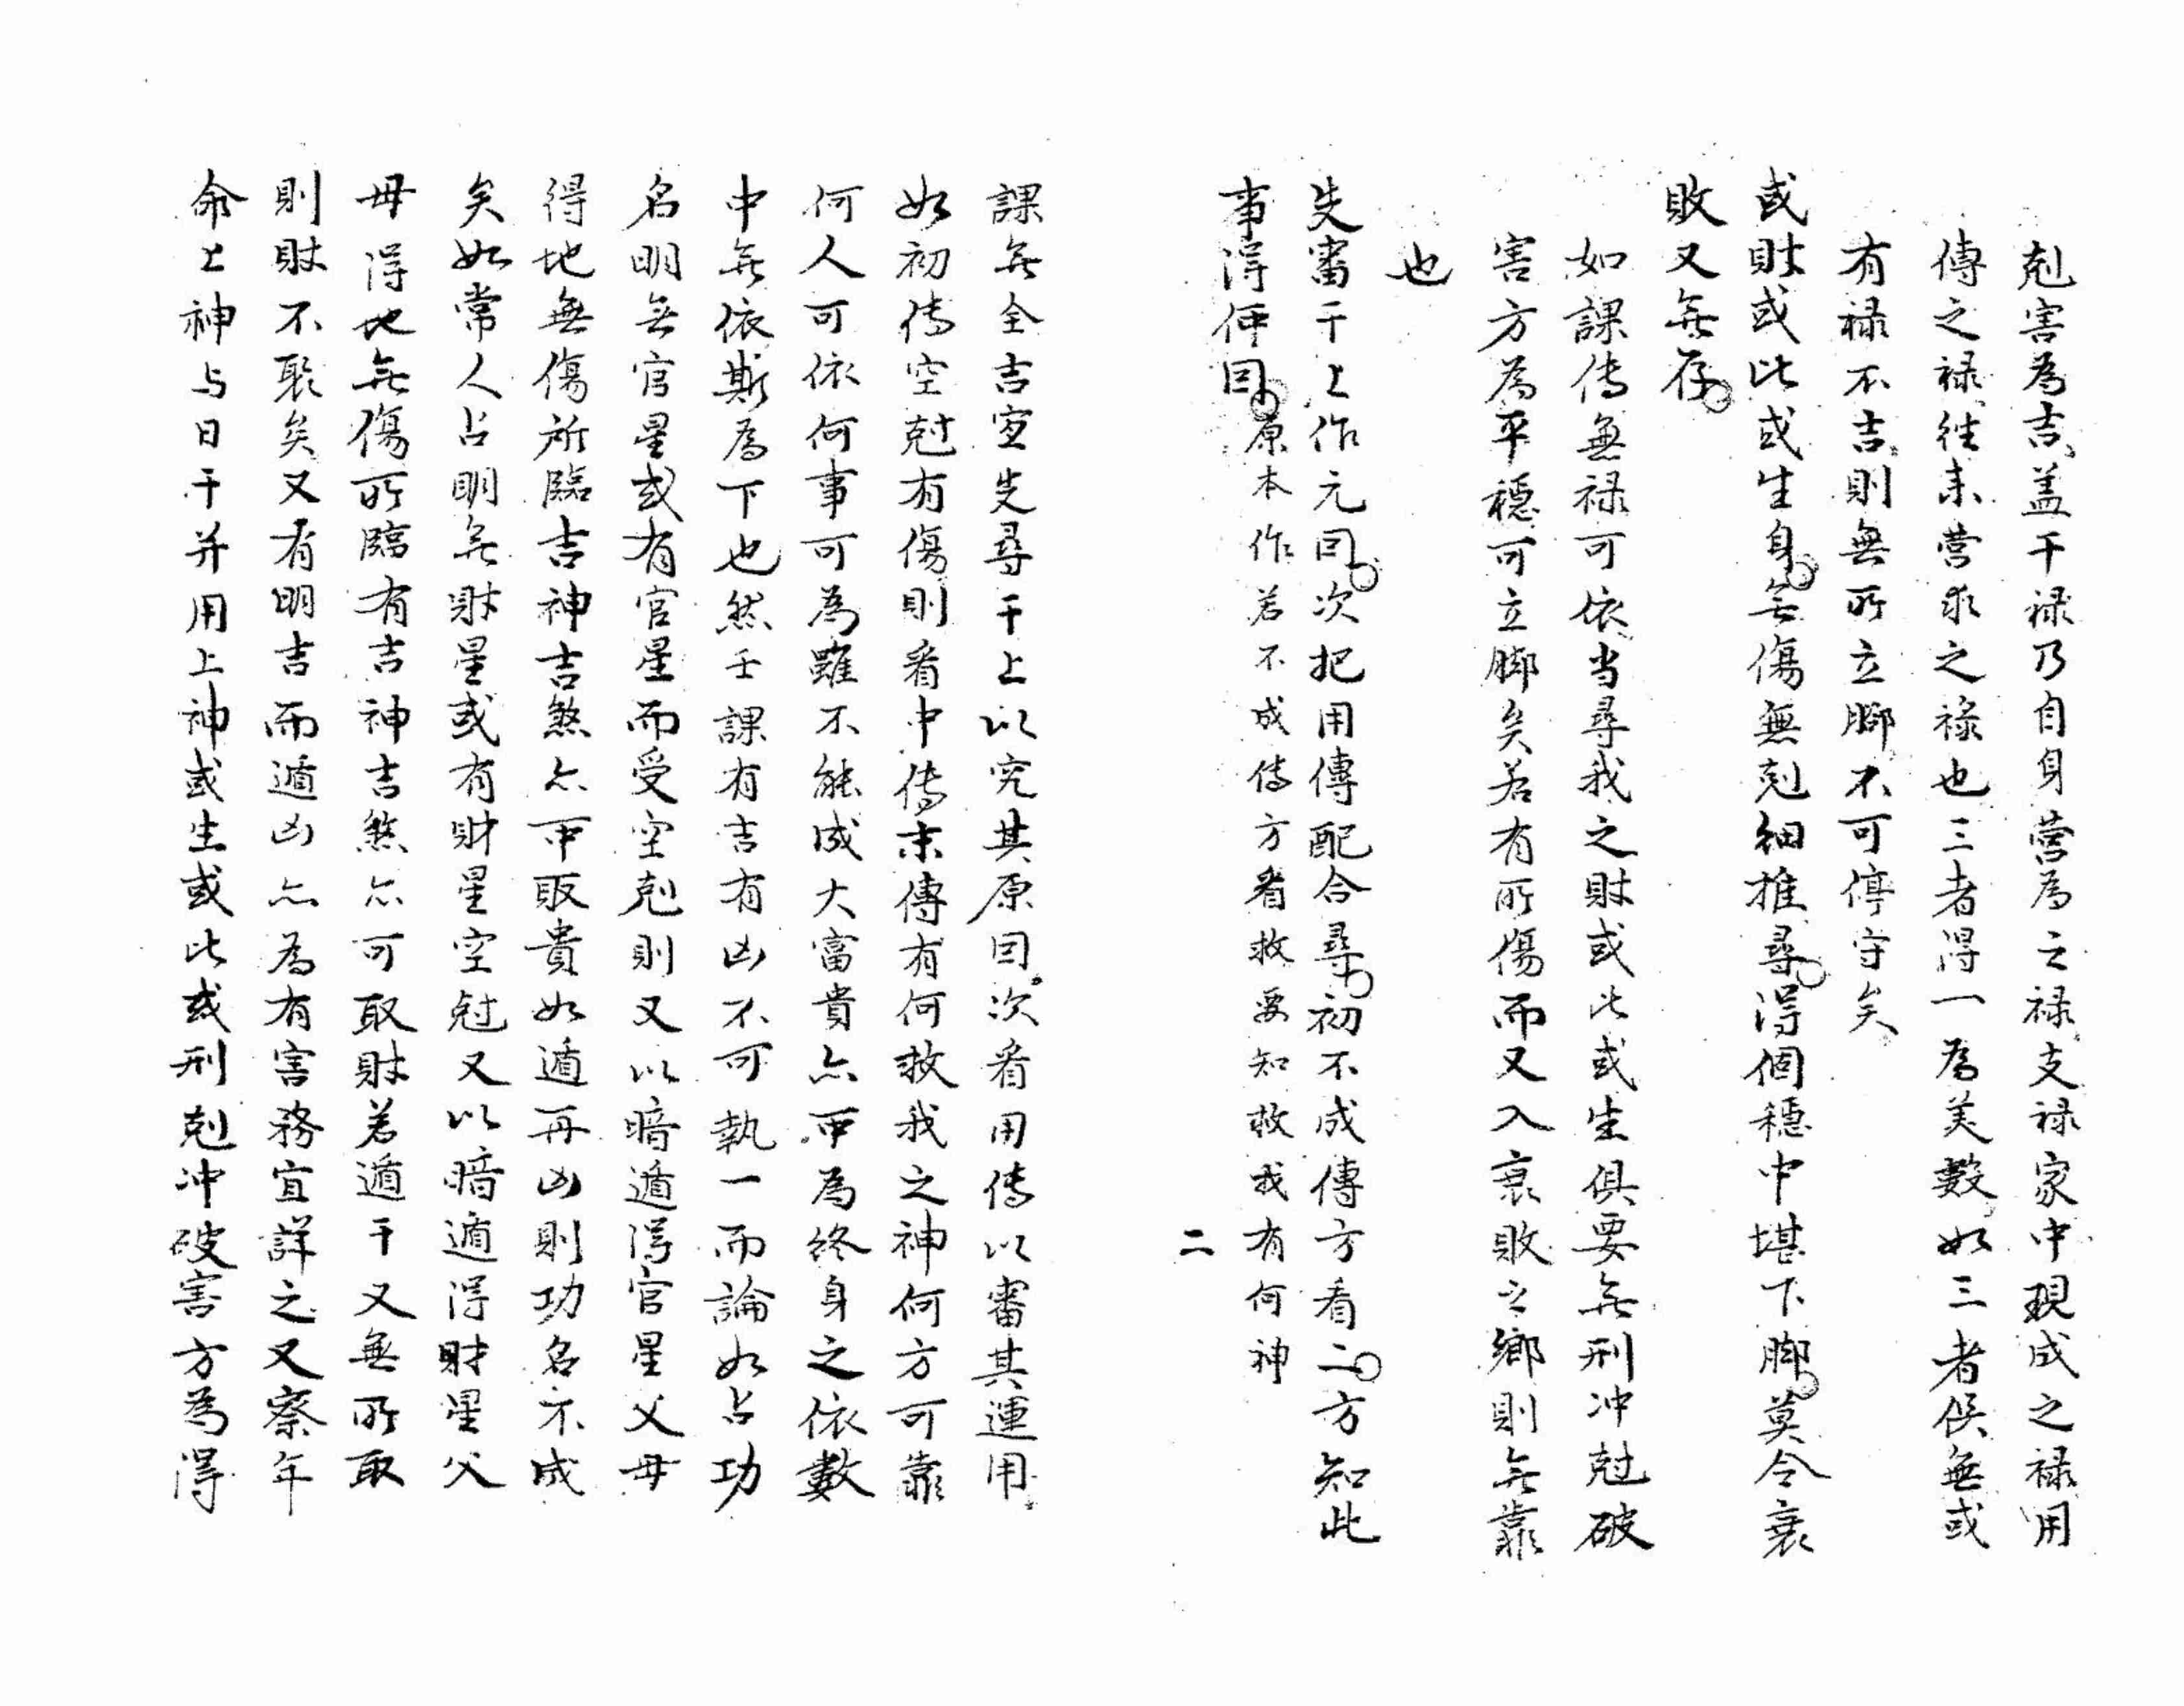 尅害為吉蓋干禄乃自身營為之禄支禄家中現成之禄用
傳之禄往来營求之禄也三者得一為美數如三者俱無或
有禄不吉則無所立脚不可停守矣
或財或比或生身無傷無尅細推尋得個穩中堪下脚莫令衰
敗又無存
如課傳無禄可依当尋我之財或比或生俱要無刑冲尅破
害方為平穩可立脚矣若有所傷而又入衰敗之鄉則無靠
也
先審干上作元因次把用傳配合尋初不成傳方看二方知此
事得伸因原本作若不成傳方看救要知救我有何神
二
課無全吉宜先尋干上以究其原因次看用傳以審其運用
如初傳空尅有傷則看中傳末傳有何救我之神何方可靠
何人可依何事可為雖不能成大富貴亦可為終身之依數
中無依斯為下也然壬課有吉有凶不可執一而論如占功
名明無官星或有官星而受空尅則又以暗遁得官星父母
得地無傷所臨吉神吉煞亦可取貴如遁再凶則功名不成
矣如常人占明無財星或有財星空尅又以暗遁得財星父
母得地無傷所臨有吉神吉煞亦可取財若遁干又無所取
則財不聚矣又有明吉而遁凶亦為有害務宜詳之又察年
命上神与日干并用上神或生或比或刑尅冲破害方為得